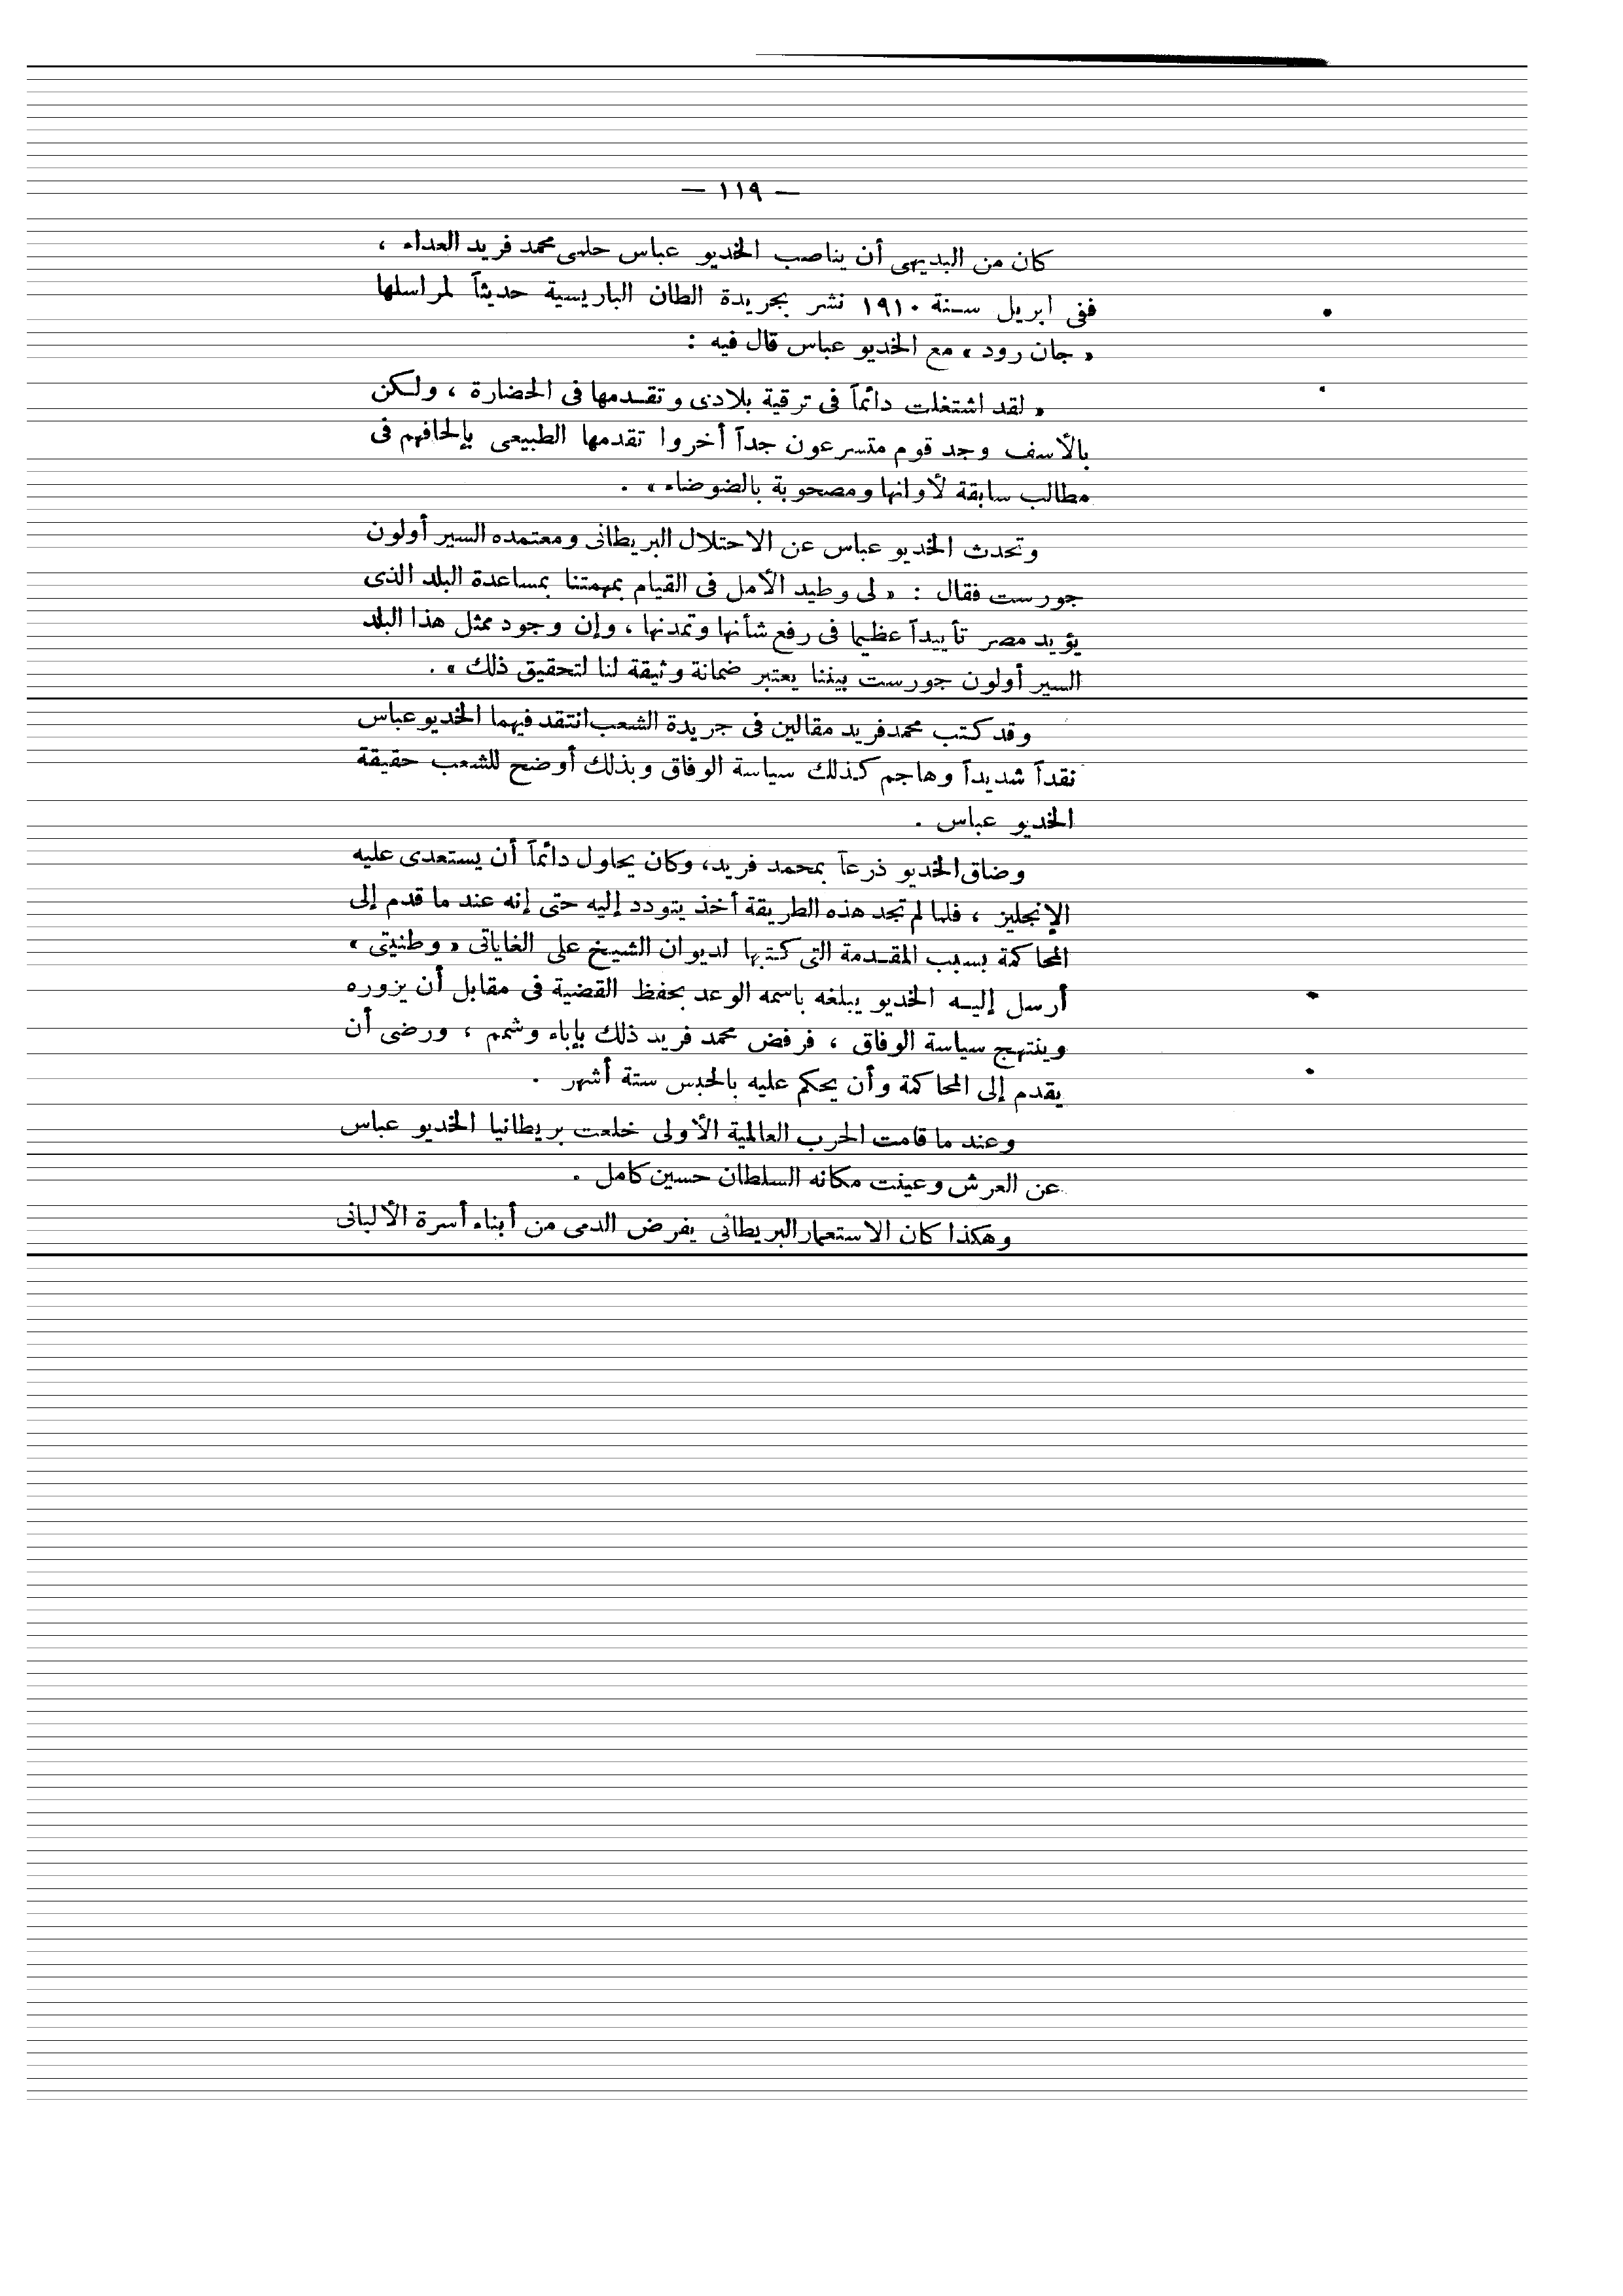 — ١١٩ —
كان من البديهى أن يناصب الخديو عباس حلمى محمد فريد العداء ،
ففى ابريل سنة ١٩١٠ نشر بجريدة الطان الباريسية حديثاً لمراسلها
« جان رود » مع الخديو عباس قال فيه :
« لقد اشتغلت دائماً فى ترقية بلادى وتقدمها فى الحضارة ، ولكن
بالأسف وجد قوم متسرعون جداً أخروا تقدمها الطبيعى بإلحافهم فى
مطالب سابقة لأوانها ومصحوبة بالضوضاء » .
وتحدث الخديو عباس عن الاحتلال البريطانى ومعتمده السير أولون
جورست فقال : « لى وطيد الأمل فى القيام بمهمتنا بمساعدة البلد الذى
يؤيد مصر تأييداً عظيما فى رفع شأنها وتمدنها ، وإن وجود ممثل هذا البلد
السير أولون جورست بيننا يعتبر ضمانة وثيقة لنا لتحقيق ذلك » .
وقد كتب محمد فريد مقالين فى جريدة الشعب انتقد فيهما الخديو عباس
نقداً شديداً وهاجم كذلك سياسة الوفاق وبذلك أوضح للشعب حقيقة
الخديو عباس .
وضاق الخديو ذرعاً بمحمد فريد، وكان يحاول دائماً أن يستعدى عليه
الإنجليز ، فلما لم تجد هذه الطريقة أخذ يتودد إليه حتى إنه عند ما قدم إلى
المحاكمة بسبب المقدمة التى كتبها لديوان الشيخ على الغاياتى « وطنيتى »
أرسل إليه الخديو يبلغه باسمه الوعد بحفظ القضية فى مقابل أن يزوره
وينتهج سياسة الوفاق ، فرفض محمد فريد ذلك بإباء وشمم ، ورضى أن
يقدم إلى المحاكمة وأن يحكم عليه بالحبس ستة أشهر .
وعند ما قامت الحرب العالمية الأولى خلعت بريطانيا الخديو عباس
عن العرش وعينت مكانه السلطان حسين كامل .
وهكذا كان الاستعمار البريطانى يفرض الدمى من أبناء أسرة الألبانى